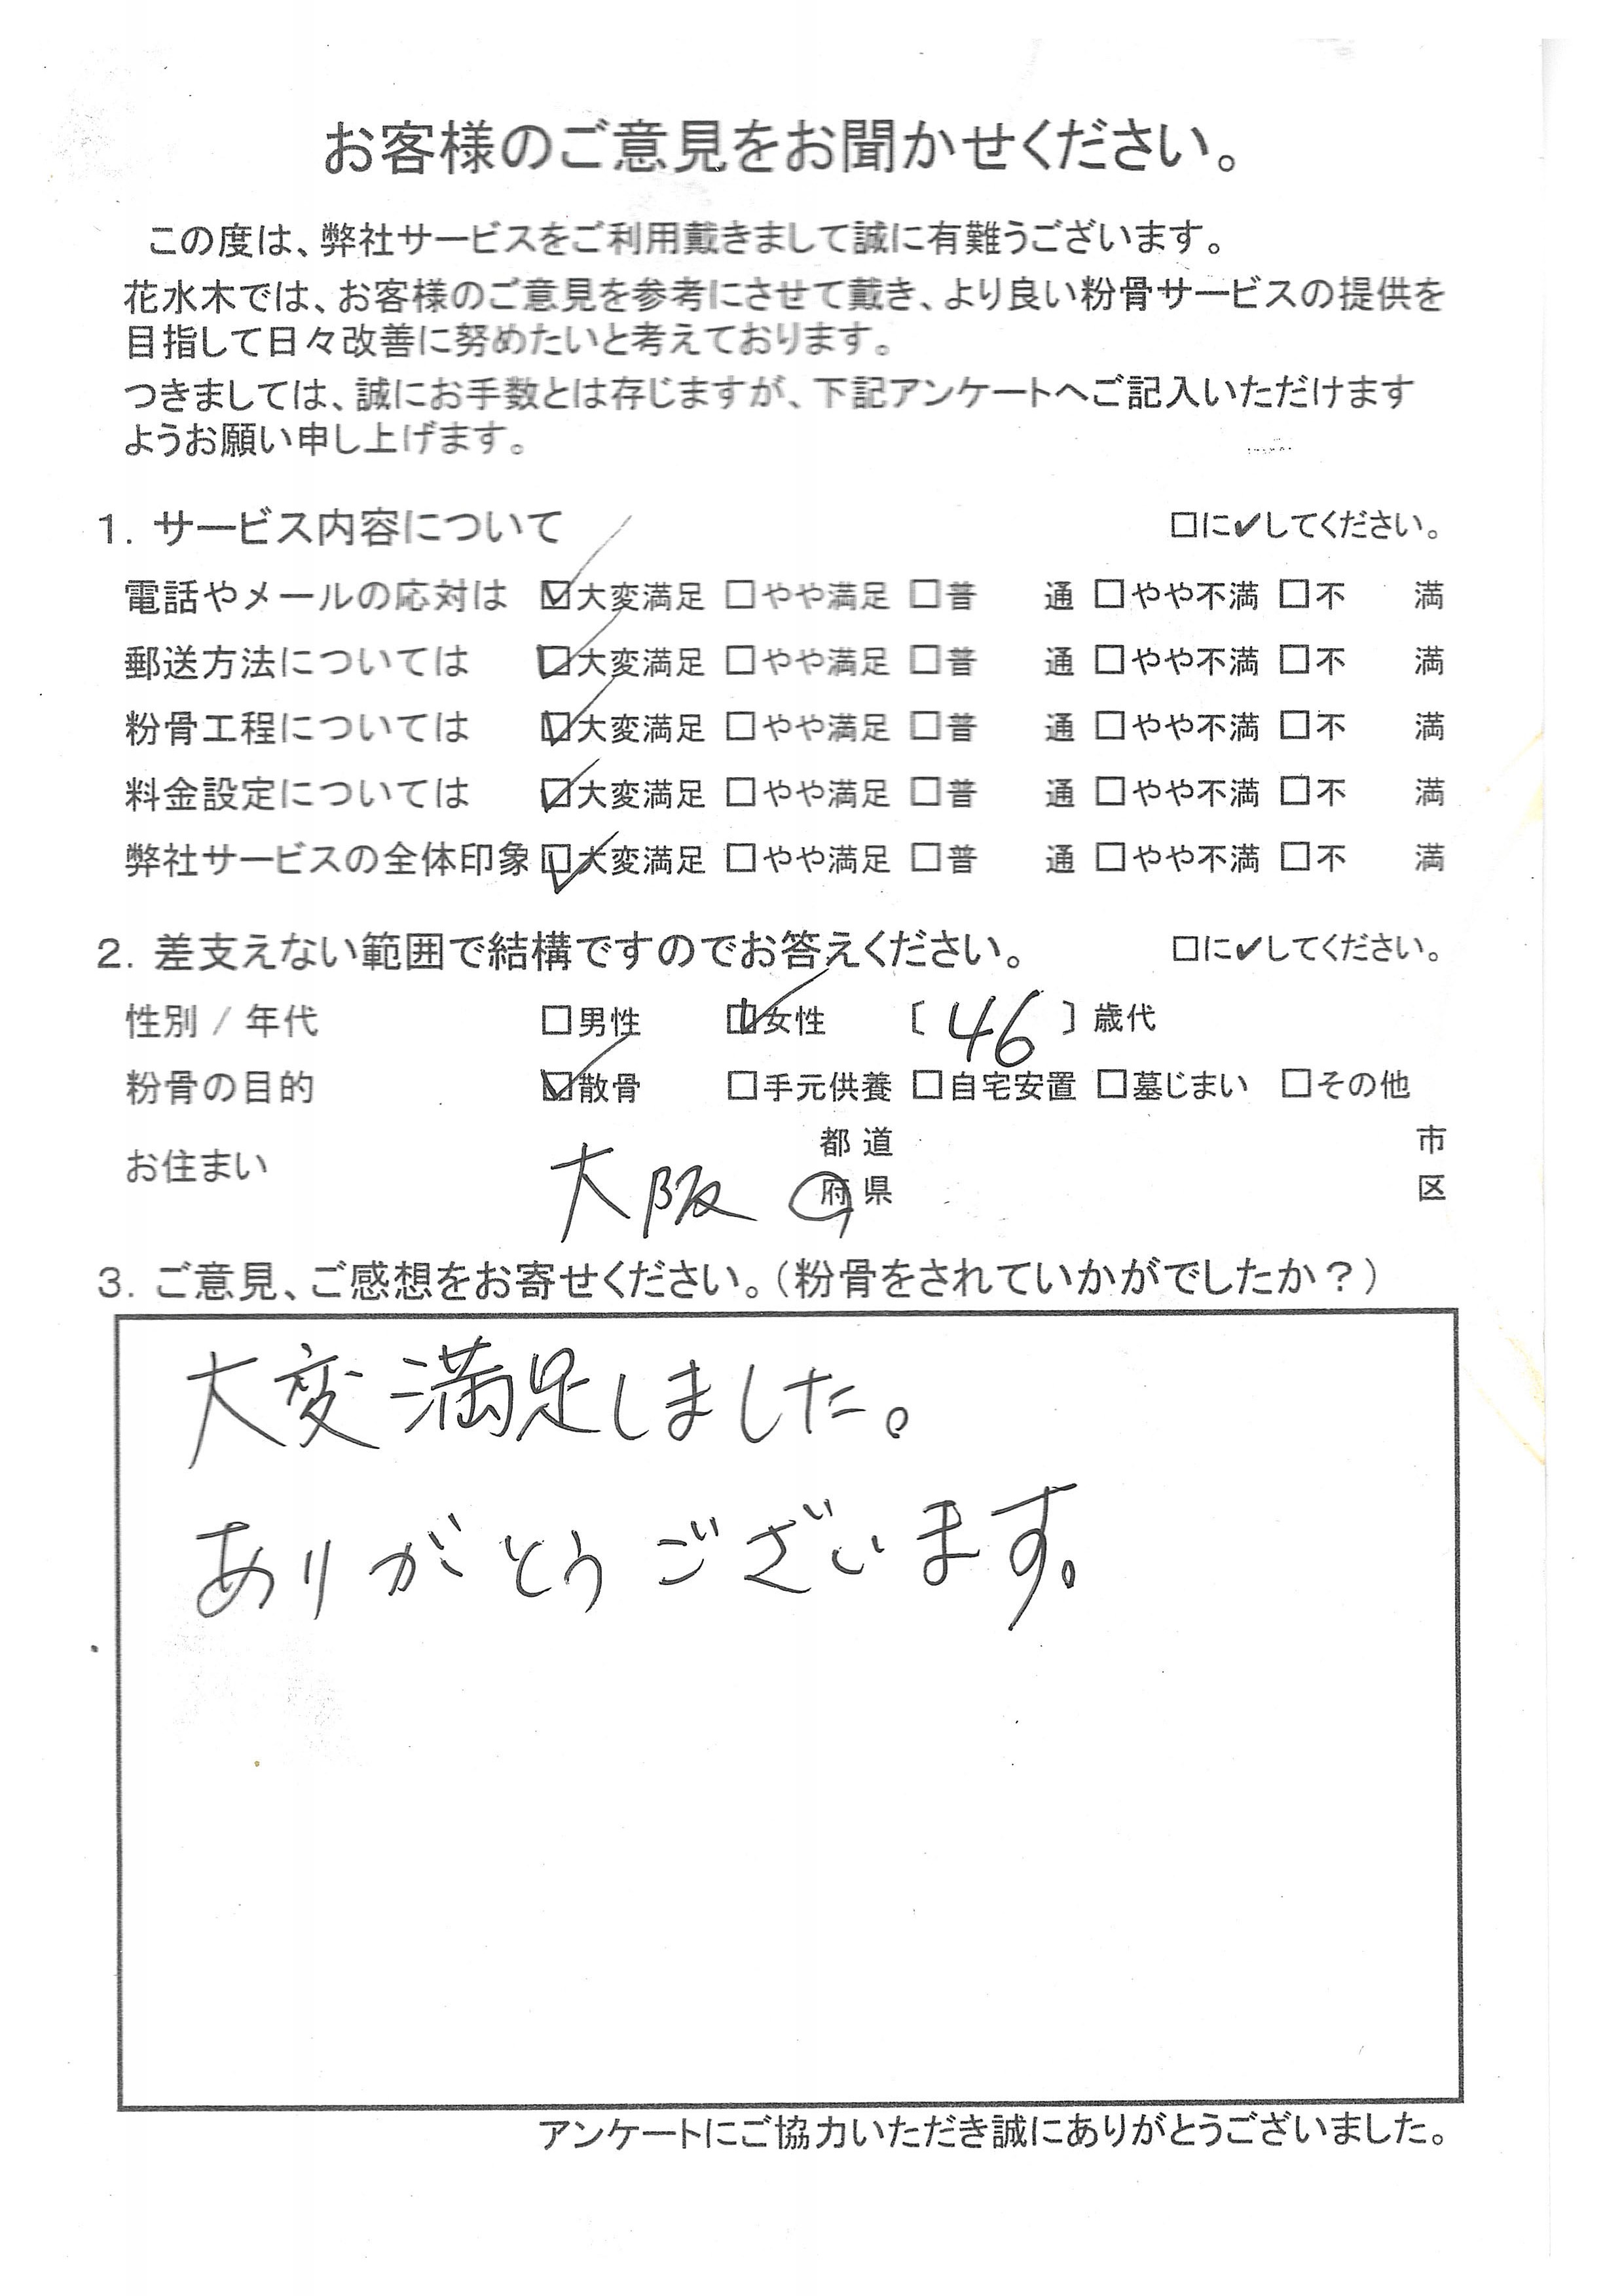 お客様のご意見をお聞かせください。
この度は、弊社サービスをご利用戴きまして誠に有難うございます。
花水木では、お客様のご意見を参考にさせて戴き、より良い粉骨サービスの提供を
目指して日々改善に努めたいと考えております。
つきましては、誠にお手数とは存じますが、下記アンケートへご記入いただけます
ようお願い申し上げます。
1. サービス内容について □に✔してください。
電話やメールの応対は ☑大変満足 □やや満足 □普 通 □やや不満 □不 満
郵送方法については ☑大変満足 □やや満足 □普 通 □やや不満 □不 満
粉骨工程については ☑大変満足 □やや満足 □普 通 □やや不満 □不 満
料金設定については ☑大変満足 □やや満足 □普 通 □やや不満 □不 満
弊社サービスの全体印象 ☑大変満足 □やや満足 □普 通 □やや不満 □不 満
2. 差支えない範囲で結構ですのでお答えください。 □に✔してください。
性別 / 年代 □男性 ☑女性 〔 46 〕歳代
粉骨の目的 ☑散骨 □手元供養 □自宅安置 □墓じまい □その他
お住まい 大阪 都道府県 市区
3. ご意見、ご感想をお寄せください。(粉骨をされていかがでしたか?)
大変満足しました。
ありがとうございます。
アンケートにご協力いただき誠にありがとうございました。